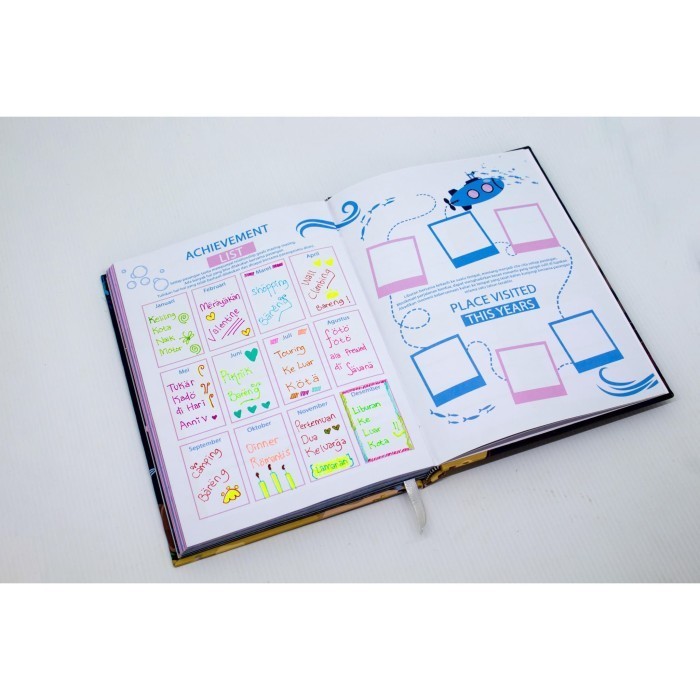 ACHIEVEMENT
LIST
Januari
Keliling
Kota
Naik
Motor
Februari
Merayakan
Valentine
Maret
Shopping
Bareng
April
Wall
Climbing
Bareng!
Mei
Tukar
Kado
di Hari
Anniv
Juni
Piknik
Bareng
Juli
Touring
Ke Luar
Kota
Agustus
Foto
foto
ala Prewed
di
Savana
September
Camping
Bareng
Oktober
Dinner
Romantis
November
Pertemuan
Dua
Keluarga
Lamaran
Desember
Liburan
Ke
Luar
Kota
PLACE VISITED
THIS YEARS